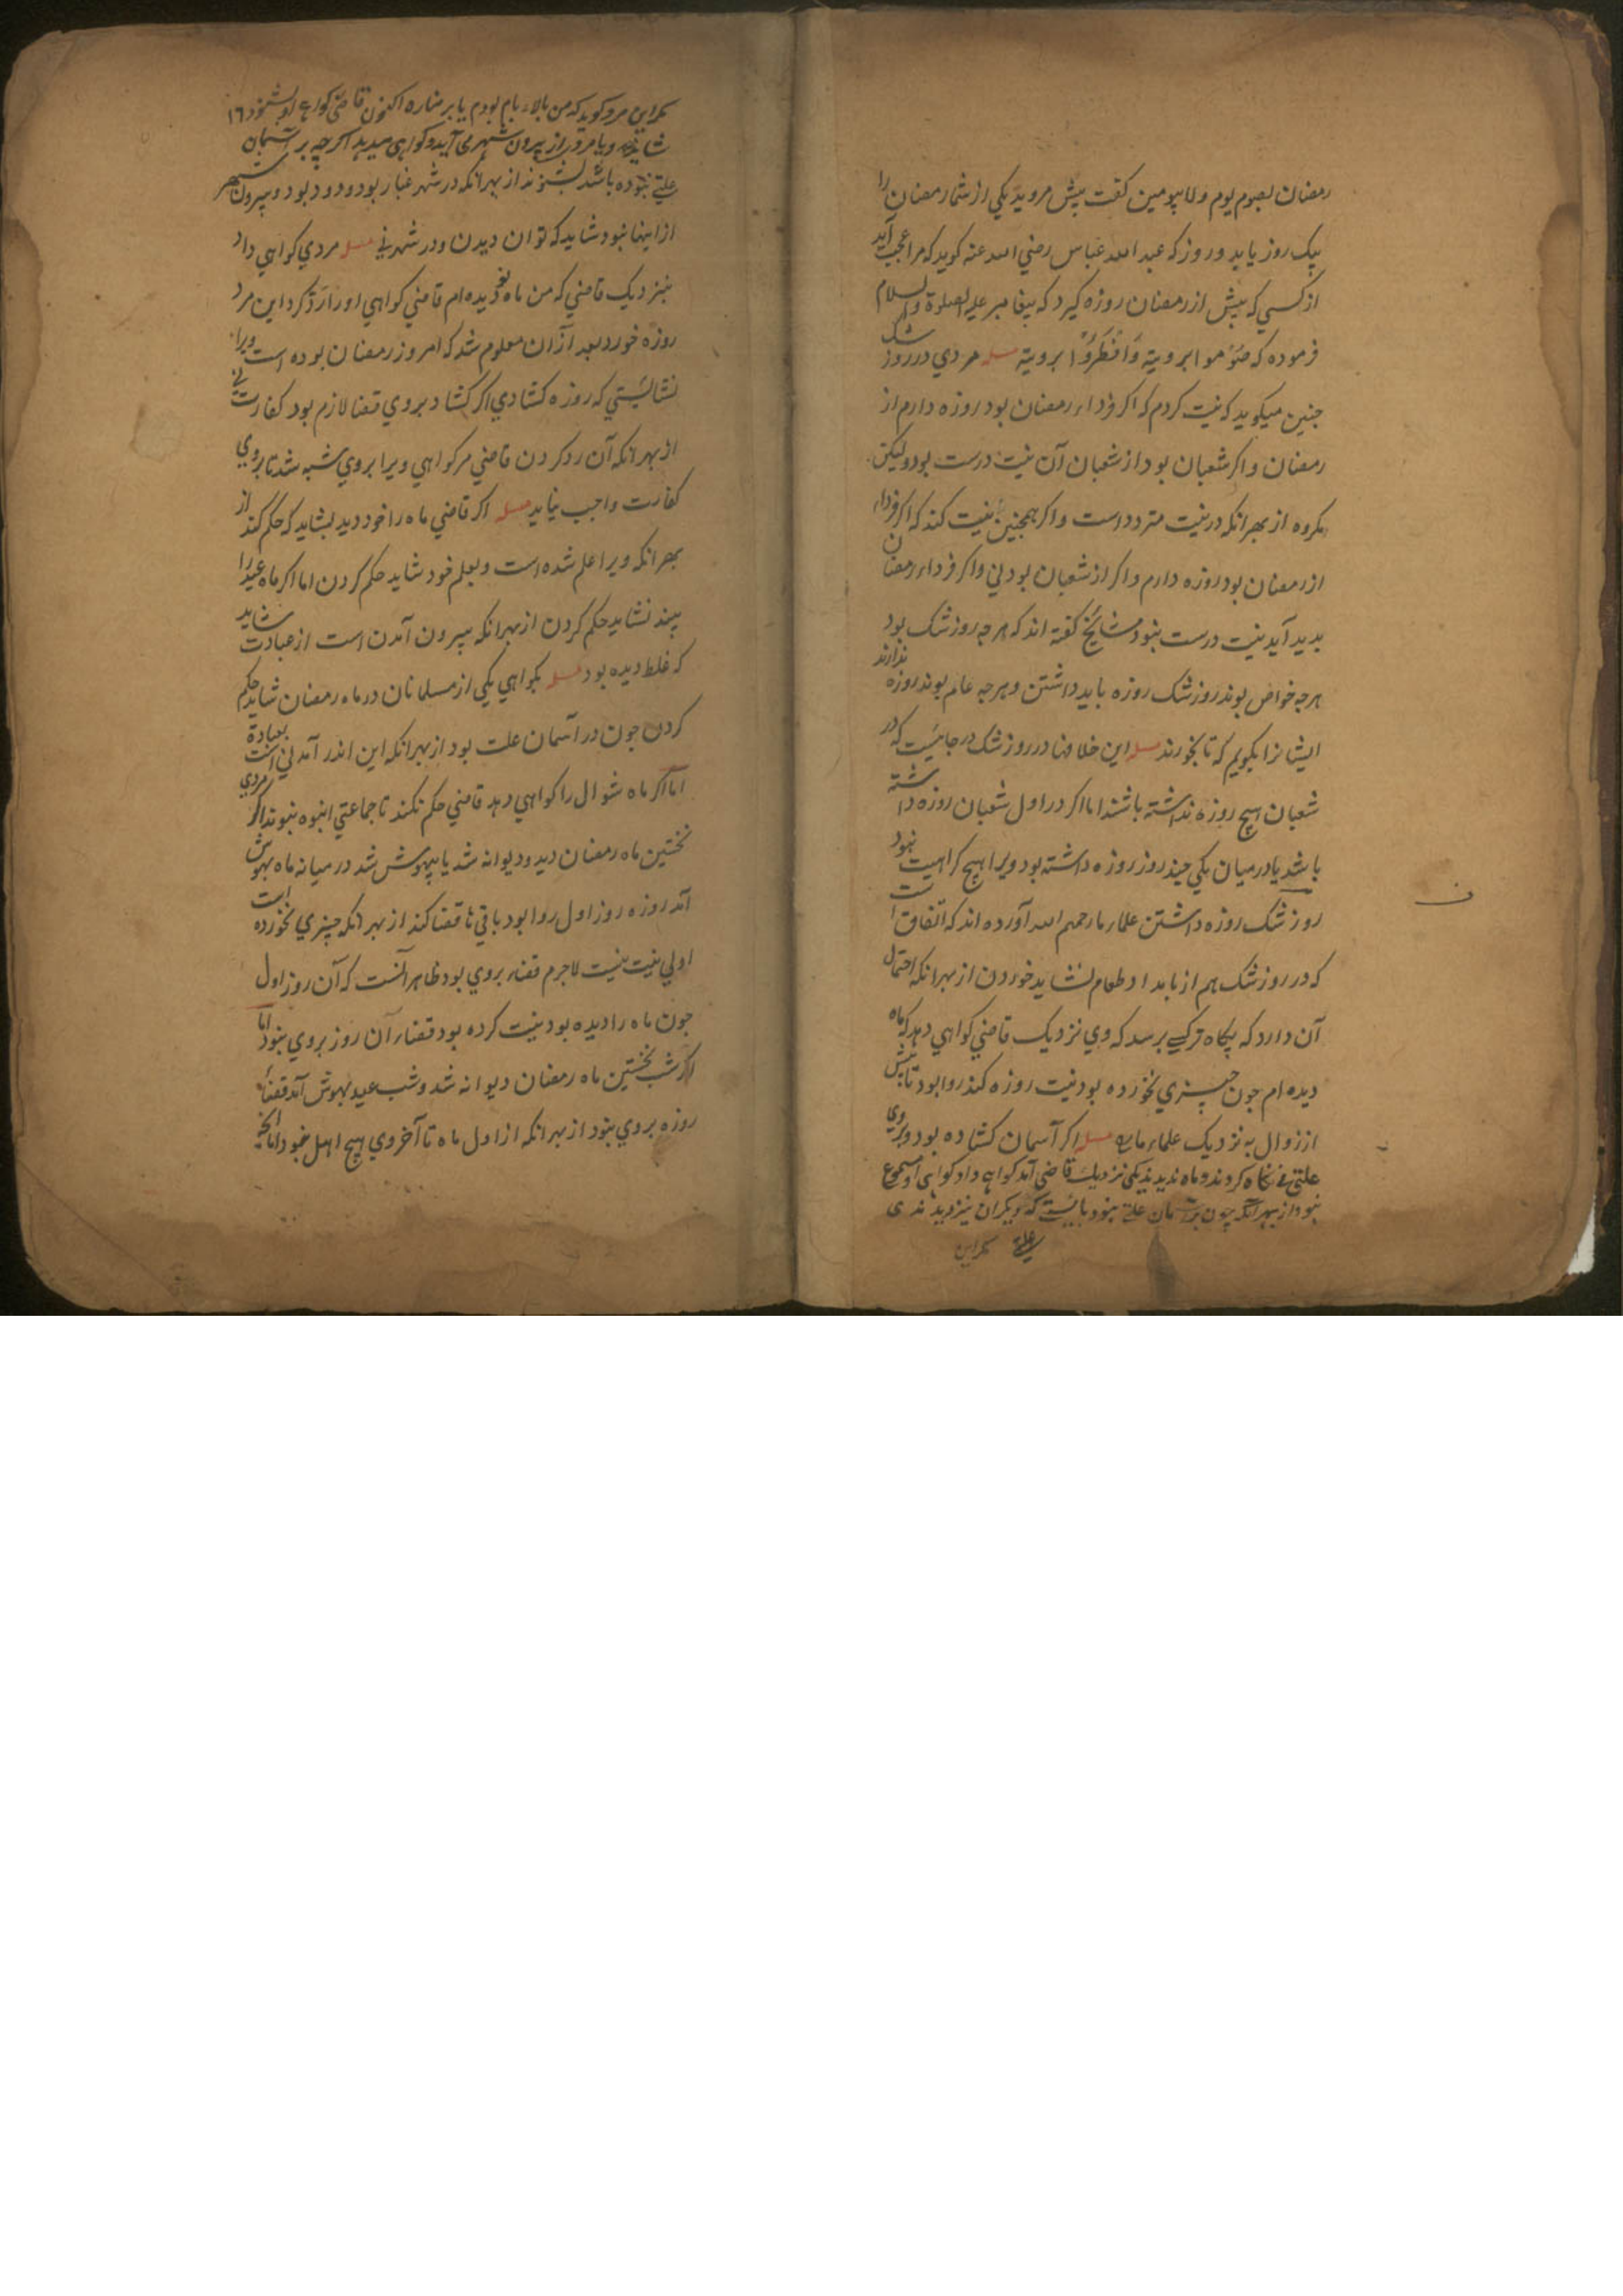 رمضان بصوم يوم ولا بيومين كفت پيش مرويد يكي از شمار رمضان را
بيك روز يا بد و روز كه عبد الله عباس رضي الله عنه كويد كه مرا عجب آيد
از كسي كه پيش از رمضان روزه كيرد كه پيغامبر عليه الصلوة والسلام
فرموده كه صُوْموا برويته وَافْطَرُوْا برويته مسله مردي در روز شك
جنين ميكويد كه نيت كردم كه اكر فرداء رمضان بود روزه دارم از
رمضان و اكر شعبان بود از شعبان آن نيت درست بود وليكن
مكروه از بهر انكه در نيت متردد است و اكر همجنين نيت كند كه اكر فرداء
از رمضان بود روزه دارم و اكر از شعبان بود ني و اكر فرداء رمضان
بديد آيد نيت درست نبود مشايخ كفته اند كه هرجه روز شك بود
هرجه خواص بوند روز شك روزه بايد داشتن و هرجه عام بوند روزه ندارند
ايشانرا بكويم كه تا نخورند مسله اين خلافها در روز شك در جائيست كه در
شعبان هيچ روزه نداشته باشند اما اكر در اول شعبان روزه داشته
باشد يا در ميان يكي جند روز روزه داشته بود ويرا هيچ كراهيت نبود
روز شك روزه داشتن علماء ما رحمهم الله آورده اند كه اتفاق است
كه در روز شك هم از بامداد طعام نشايد خوردن از بهر انكه احتمال
آن دارد كه پكاه تر كسي برسد كه وي نزديك قاضي كواهي دهد كه ماه
ديده ام جون چيزي نخورده بود نيت روزه كند روا بود تا پيش
از زوال به نزديك علماء ما مسله اكر آسمان كشاده بود و بروي
علتي ني نكاه كردند و ماه نديدند يكي نزديك قاضي آمد كواهي داد كواهي او مسموع
نبود از بهر آنكه چون بر آسمان علتي نبود بايستي كه ديكران نيز ديدندى
مكر اين
مكر اين مرد كويد كه من بالاء بام بودم يا بر مناره اكنون قاضي كواهي او بشنود ١٦
شايد و يا مردى از بيرون شهر مى آيد و كواهى ميدهد اكرچه بر آسمان
علتي نبوده باشد بشنوند از بهر انكه در شهر غبار بود و دود بود و بيرون شهر
از اينها نبود شايد كه توان ديدن و در شهر ني مسله مردي كواهي داد
بنزديك قاضي كه من ماه نو ديده ام قاضي كواهي او را رَدّ كرد اين مرد
روزه خورد بعد از آن معلوم شد كه امروز رمضان بوده است ويرا
نشايستي كه روزه كشادي اكر كشاد بروي قضا لازم بود كفارت ني
از بهر انكه آن رد كردن قاضي مر كواهي ويرا بروي شبه شد تا بروي
كفارت واجب نيايد مسله اكر قاضي ماه را خود ديد بشايد كه حكم كند از
بهر انكه ويرا علم شده است و بعلم خود شايد حكم كردن اما اكر ماه عيد را
بيند نشايد حكم كردن از بهر انكه بيرون آمدن است از عبادت شايد
كه غلط ديده بود مسله بكواهي يكي از مسلمانان در ماه رمضان شايد حكم
كردن جون در آسمان علت بود از بهر انكه اين اندر آمدني است بعبادة
اما اكر ماه شوال را كواهي دهد قاضي حكم نكند تا جماعتي انبوه نبوند اكر مردي
نخستين ماه رمضان ديد و ديوانه شد يا بيهوش شد در ميانه ماه بهوش
آمد روزه روز اول روا بود باقي ها قضا كند از بهر انكه چيزي نخورده است
اولي نيت نيست لاجرم قضاء بروي بود ظاهر آنست كه آن روز اول
جون ماه را ديده بود نيت كرده بود قضاء آن روز بروي نبود اما
اكر شب نخستين ماه رمضان ديوانه شد و شب عيد بهوش آمد قضاء
روزه بروي نبود از بهر انكه از اول ماه تا آخر وي هيچ اهل نبود اما انكه